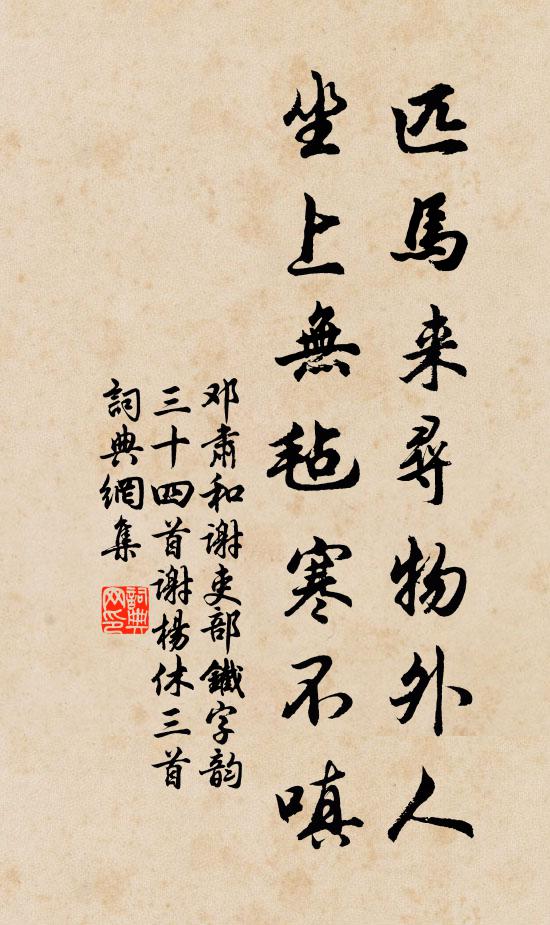 匹馬来尋物外人
坐上無毡寒不嗔
邓肅和谢吏部鐵字韵
三十四首谢楊休三首
詞典網集
詞典网印